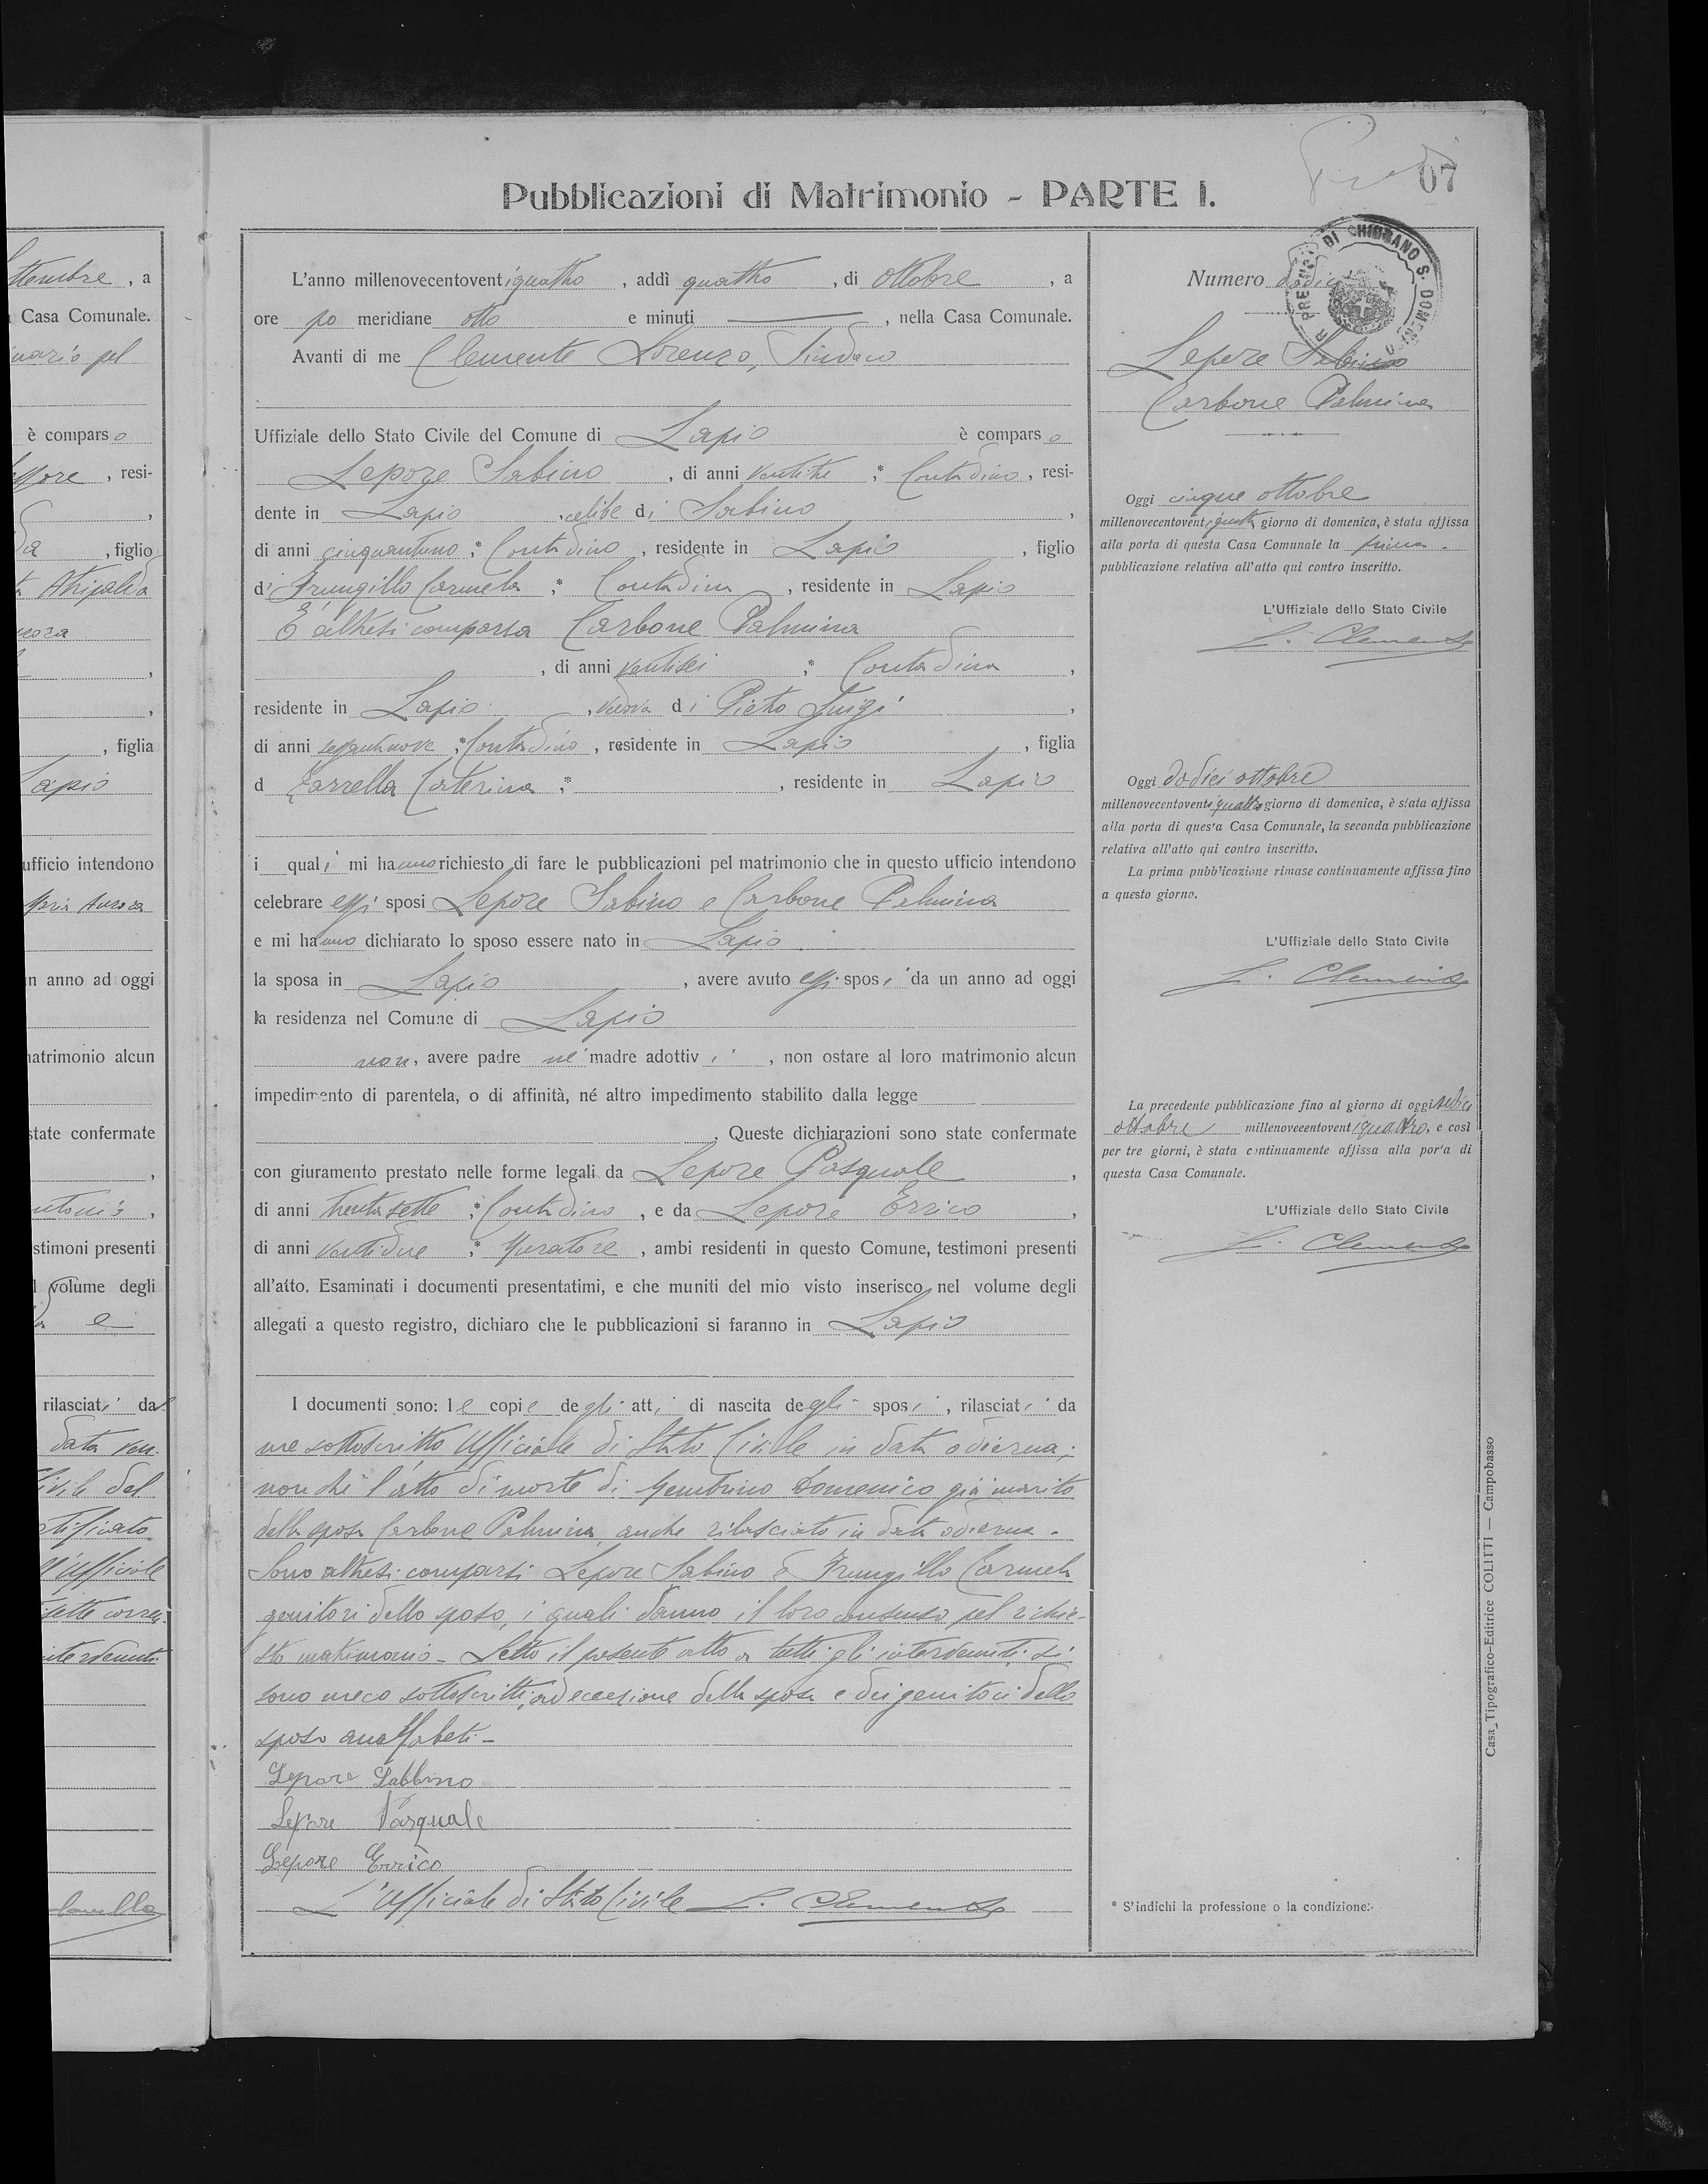 07
Pubblicazioni di Matrimonio - PARTE I.
L'anno millenovecentoventiquattro, addì quattro, di ottobre, a
ore po meridiane otto e minuti ———, nella Casa Comunale.
Avanti di me Clemente Lorenzo, Sindaco
Uffiziale dello Stato Civile del Comune di Lapio è comparso
Lepore Sabino, di anni ventitre * Contadino, resi-
dente in Lapio, celibe di Sabino,
di anni cinquantuno * Contadino, residente in Lapio, figlio
di Frungillo Carmela * Contadina, residente in Lapio
È altresì comparsa Carbone Palmina
, di anni ventisei * Contadina,
residente in Lapio, vedova di Pietro Luigi,
di anni sessantanove * Contadino, residente in Lapio, figlia
d Zarrella Caterina *, residente in Lapio
i quali mi hanno richiesto di fare le pubblicazioni pel matrimonio che in questo ufficio intendono
celebrare essi sposi Lepore Sabino e Carbone Palmina
e mi hanno dichiarato lo sposo essere nato in Lapio
la sposa in Lapio, avere avuto essi sposi da un anno ad oggi
la residenza nel Comune di Lapio
non, avere padre nè madre adottivi, non ostare al loro matrimonio alcun
impedimento di parentela, o di affinità, né altro impedimento stabilito dalla legge
. Queste dichiarazioni sono state confermate
con giuramento prestato nelle forme legali da Lepore Pasquale,
di anni trentasette * Contadino, e da Lepore Errico,
di anni ventidue * Muratore, ambi residenti in questo Comune, testimoni presenti
all'atto. Esaminati i documenti presentatimi, e che muniti del mio visto inserisco nel volume degli
allegati a questo registro, dichiaro che le pubblicazioni si faranno in Lapio
I documenti sono: le copie degli atti di nascita degli sposi, rilasciati da
me sottoscritto Ufficiale di Stato Civile in data odierna;
nonchè l'atto di morte di Domenico già marito
della sposa Carbone Palmina anche rilasciato in data odierna.
Sono altresì comparsi Lepore Sabino e Frungillo Carmela
genitori dello sposo, i quali danno il loro consenso pel richie-
sto matrimonio - Letto il presente atto a tutti gli intervenuti si
sono meco sottoscritti, ad eccezione della sposa e dei genitori dello
sposo analfabeti -
Lepore Sabbino
Lepore Pasquale
Lepore Errico
L'Ufficiale di Stato Civile L. Clemente
Numero dodici
DI CHIUSANO S. DOMENICO
Lepore Sabino
Carbone Palmina
Oggi cinque ottobre
millenovecentoventiquattro giorno di domenica, è stata affissa
alla porta di questa Casa Comunale la prima
pubblicazione relativa all'atto qui contro inscritto.
L'Uffiziale dello Stato Civile
L. Clemente
Oggi dodici ottobre
millenovecentoventiquattro giorno di domenica, è stata affissa
alla porta di questa Casa Comunale, la seconda pubblicazione
relativa all'atto qui contro inscritto.
La prima pubblicazione rimase continuamente affissa fino
a questo giorno.
L'Uffiziale dello Stato Civile
L. Clemente
La precedente pubblicazione fino al giorno di oggi sedici
ottobre millenoveeentoventiquattro, e così
per tre giorni, è stata continuamente affissa alla porta di
questa Casa Comunale.
L'Uffiziale dello Stato Civile
L. Clemente
* S'indichi la professione o la condizione.
Casa Tipografico-Editrice COLITTI — Campobasso
ttembre, a
Casa Comunale.
è comparso
, resi-
, figlio
Atripalda
, figlia
Lapio
ufficio intendono
Maria Aurora
n anno ad oggi
matrimonio alcun
state confermate
stimoni presenti
l volume degli
e
rilasciati dal
data ven-
Civile del
Ufficiale
sette corren